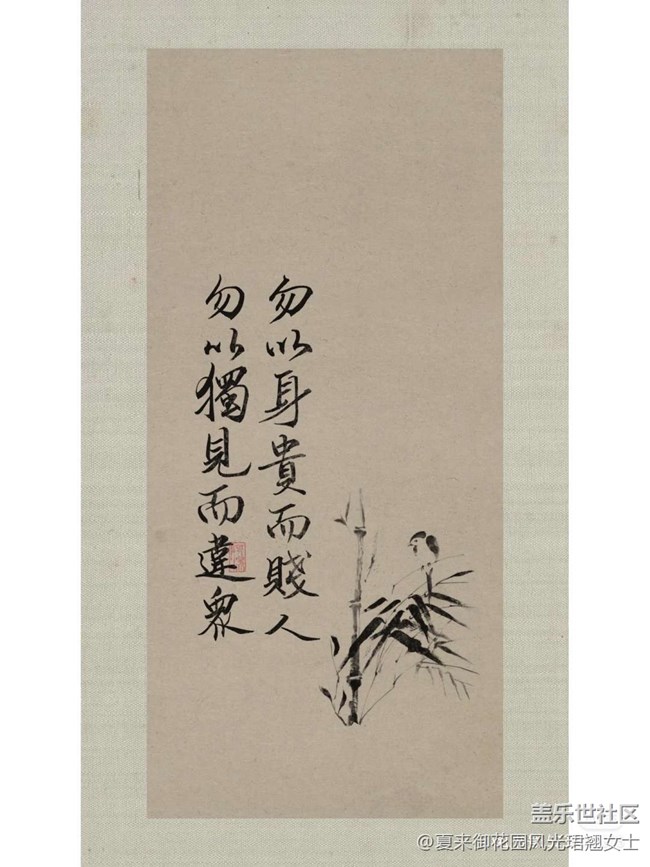 勿以身貴而賤人
勿以獨見而違眾
盖乐世社区
@夏来御花园风光珺翘女士